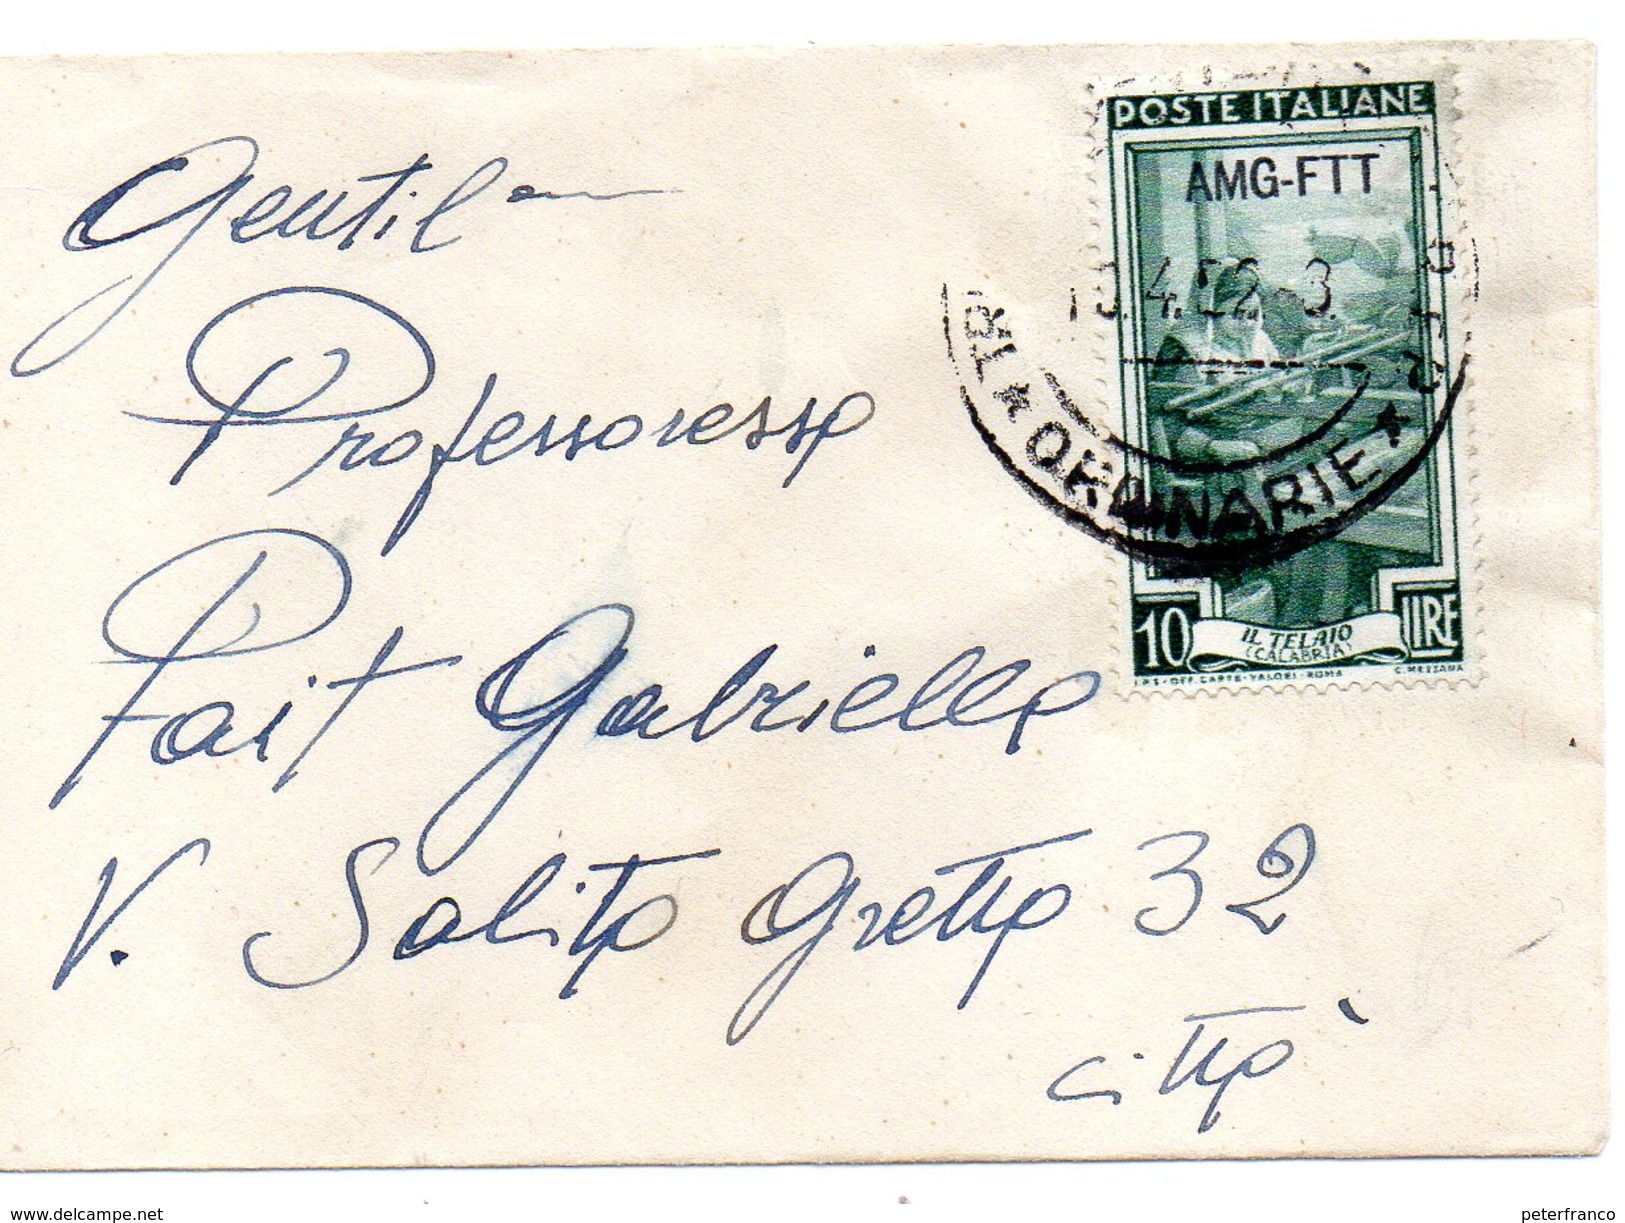 POSTE ITALIANE
AMG-FTT
.4.52.-3.
TRI * ORDINARIE *
10 LIRE
IL TELAIO
(CALABRIA)
I.P.S.-OFF. CARTE-VALORI-ROMA C. MEZZANA
Gentil
Professoressa
Pait Gabriella
V. Salita Gretta 32
città
www.delcampe.net
peterfranco